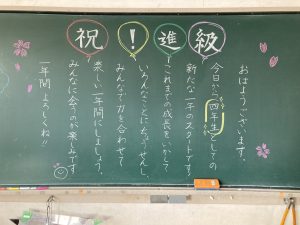 祝！進級
おはようございます。
今日から四年生としての
新たな一年のスタートです。
これまでの成長をいかして
いろんなことにちょうせんし、
みんなで力を合わせて
楽しい一年間にしましょう。
みんなに会うのが楽しみです
一年間よろしくね!!